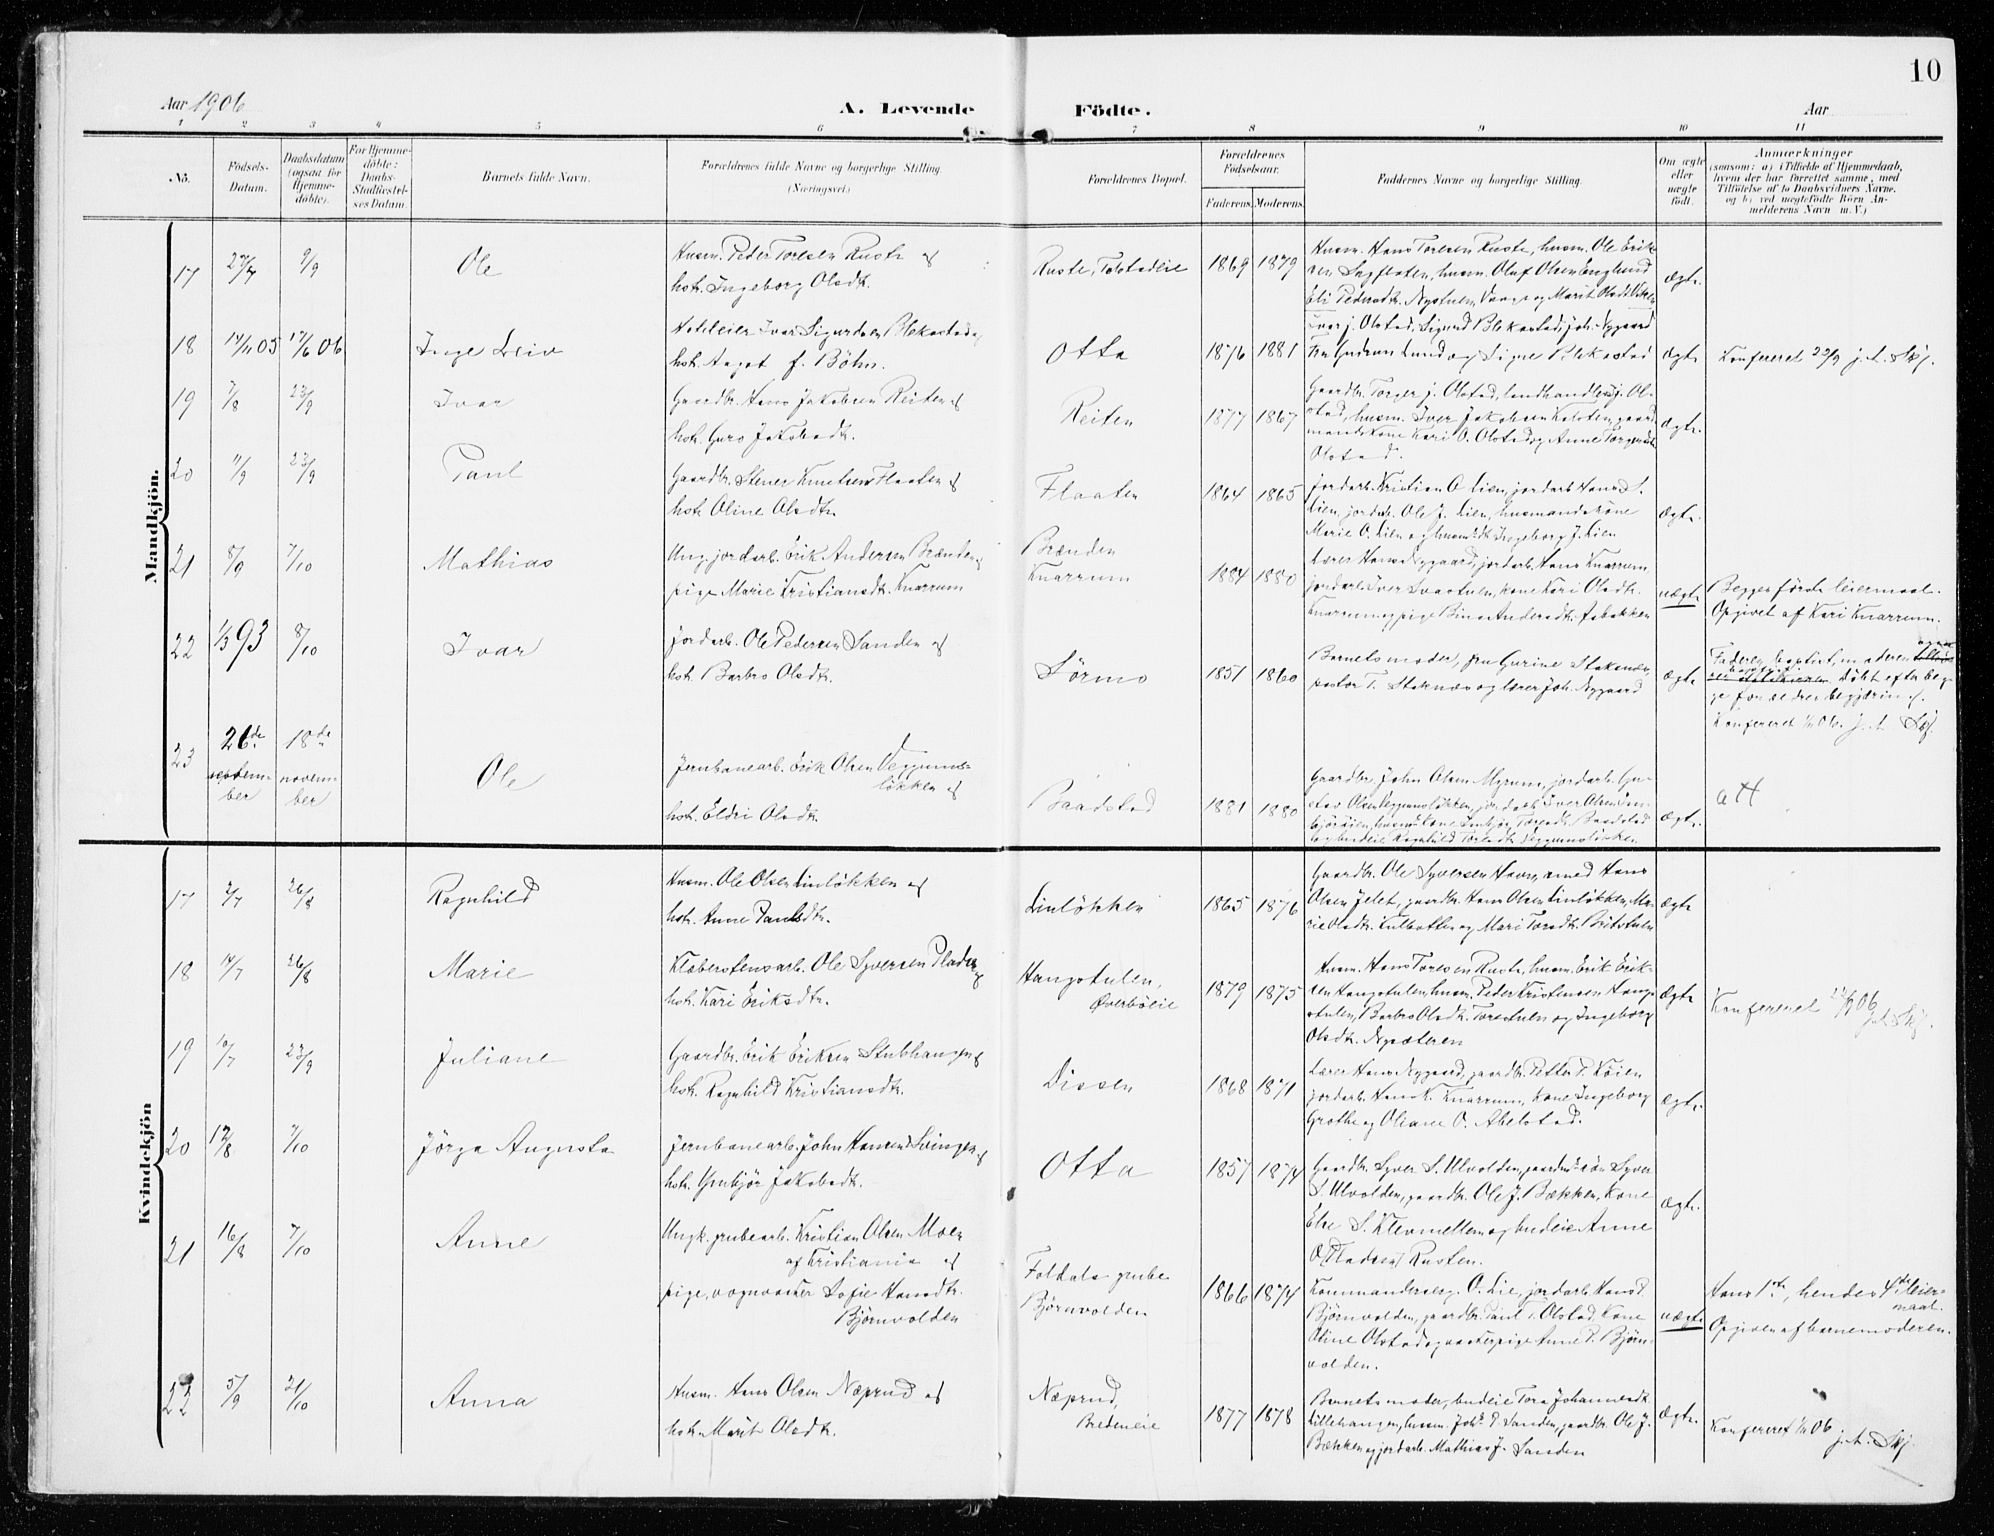 10
Aar 1906
A. Levende Födte.
Aar
1 2 3 4 5 6 7 8 9 10 11
No.
Födsels-Datum.
Daabsdatum (ogsaa for Hjemme-döbte).
For Hjemme-döbte: Daabs-Stadfæstel-ses Datum.
Barnets fulde Navn.
Forældrenes fulde Navne og borgerlige Stilling. (Næringsvei.)
Forældrenes Bopæl.
Forældrenes Födselsaar.
Faderens. Moderens.
Faddernes Navne og borgerlige Stilling.
Om ægte eller uægte födt.
Anmærkninger
(saasom: a) i Tilfælde af Hjemmedaab,
hvem der har forrettet samme, med
Tilföielse af to Daabsvidners Navne.
og b) ved uægtefödte Börn An-
melderens Navn m. V.)
Mandkjön.
17 27/7 9/9 Ole
Husm. Peder Toresen Ruste og
hstr. Ingeborg Olsdtr.
Ruste, Tolstadeie 1869 1879
Husm. Hans Toresen Ruste, husm. Ole Erik-
sen Sagfloten, husm. Oluf Olsen Englund
Eli Pedersdtr. Nystuen, Vaage og Marit Olsdtr
Ægte
18 14/11 05 17/6 06 Inge Leiv
Hoteleier Ivar Sigurdsen Blekastad og
hstr. Aagot f. Böhn.
Otta 1876 1881
Ivar J. Olstad, Sigurd Blekastad, Joh. Nygaard
Fru Gudrun Lund og Signe Blekastad
Ægte
Konfereret 22/9 j. t. Skj.
19 7/8 23/9 Ivar
Gaardbr. Hans Jakobsen Reiten og
hstr. Guro Jakobsdtr.
Reiten 1877 1867
Gaardbr. Torger J. Olstad, landhandler J. Ol-
stad, husm. Iver Jakobsen Kolsten, gaard-
mandskone Kari O. Olstad og Anne Torgersdtr
Olstad.
Ægte
20 11/9 23/9 Paul
Gaardbr. Stener Knutsen Flaaten og
hstr. Oline Olsdtr.
Flaaten 1864 1865
Jordarb. Kristian O. Lien, jordarb. Hans S.
Lien, jordarb. Ole J. Lien, husmandskone
Marie O. Lien og husm.dtr. Ingeborg J. Lien
Ægte
21 8/9 7/10 Mathias
Ung. jordarb. Erik Andersen Brænden og
pige Marie Kristiansdtr. Knarrum
Brænden
Knarrum 1884 1880
Lærer Hans Nygaard, jordarb. Hans Knarrum
jordarb. Iver Svastuen, kone Kari Olsdtr.
Knarrum og pige Bina Andersdtr.
uægte
Begges förste leiermaal.
Opgivet af Kari Knarrum.
22 1/3 93 8/10 Ivar
Jordarb. Ole Pedersen Sanden og
hstr. Barbro Olsdtr.
Sörmo 1851 1860
Barnets moder, fru Gurine Staknæs,
pastor T. Staknæs og lærer Joh. Nygaard
Ægte
Faderen baptist, moderen
döbt efter beg-
ge forældres begjæring.
Konfereret j. t. Skj.
23 26de september 18de november Ole
Jernbanearb. Erik Olsen Veggums-
løkken og
hstr. Eldri Olsdtr.
Baadstad 1881 1880
Gaardbr. John Olsen Myrum, jordarb. Gu-
stav Olsen Veggumsløkken, jordarb. Iver Olsen
Ægte
att
Kvindekjön
17 2/7 26/8 Ragnhild
Husm. Ole Olsen Linløkken og
hstr. Anne Paulsdtr.
Linløkken 1865 1876
Gaardbr. Ole Syversen Havn, smed Hans
Olsen Jelet, gaardbr. Hans Olsen Linløkken, Ma-
rie Olsdtr. Kulbotten og Mari Torsdtr.
Ægte
18 14/7 26/8 Marie
Klæberstensarb. Ole Syversen Pladsen og
hstr. Kari Eriksdtr.
Haugstulen,
Øverbøeie 1879 1875
Husm. Hans Toresen Ruste, husm. Erik Erik-
sen Haugstulen, husm. Peder Kristensen Haug-
stulen, Barbro Olsdtr. Torestulen og Ingeborg
Olsdtr. Nysæteren
Ægte
Konfereret 22/9 06
j. t. Skj.
19 10/7 23/9 Juliane
Gaardbr. Erik Eriksen Stubhaugen og
hstr. Ragnhild Kristiansdtr.
Dissen 1868 1871
Lærer Hans Nygaard, gaardbr. Petter P. Köien
jordarb. Hans K. Knarrum, kone Ingeborg
Grothe og Oliane O. Abelstad.
Ægte
20 19/8 7/10 Jörga Augusta
Jernbanearb. John Hansen Svingen og
hstr. Umbjör Jakobsdtr.
Otta 1857 1874
Gaardbr. Syver S. Ulvolden, gaardm.sön Syver
S. Ulvolden, gaardbr. Ole J. Bækken, kone
Else S. Klevmellen og budeie Anne
O. (Pladsen) Rusten.
Ægte
21 16/8 7/10 Anne
Ungk. grubearb. Kristian Olsen Moen
af Kristiania og
pige, vognvasker Sofie Hansdtr.
Björnvolden
Foldals grube
Björnvolden 1866 1874
Kommanderserg. O. Lie, jordarb. Hans J.
Björnvolden, gaardbr. Paul T. Olstad, kone
Oline Olstad og pige Anne P. Björn-
volden.
uægte
Hans 1ste, hendes 4de leier-
maal.
Opgiven af barnemoderen.
22 5/9 21/10 Anna
Husm. Hans Olsen Næprud og
hstr. Marit Olsdtr.
Næprud,
Bredeneie 1877 1878
Barnets moder, budeie Tora Johannesdtr.
Lillehaugen, husm. Johs. P. Sanden, gaardbr. Ole J.
Bækken og jordarb. Mathias J. Sanden
Ægte
Konfereret 06
j. t. Skj.